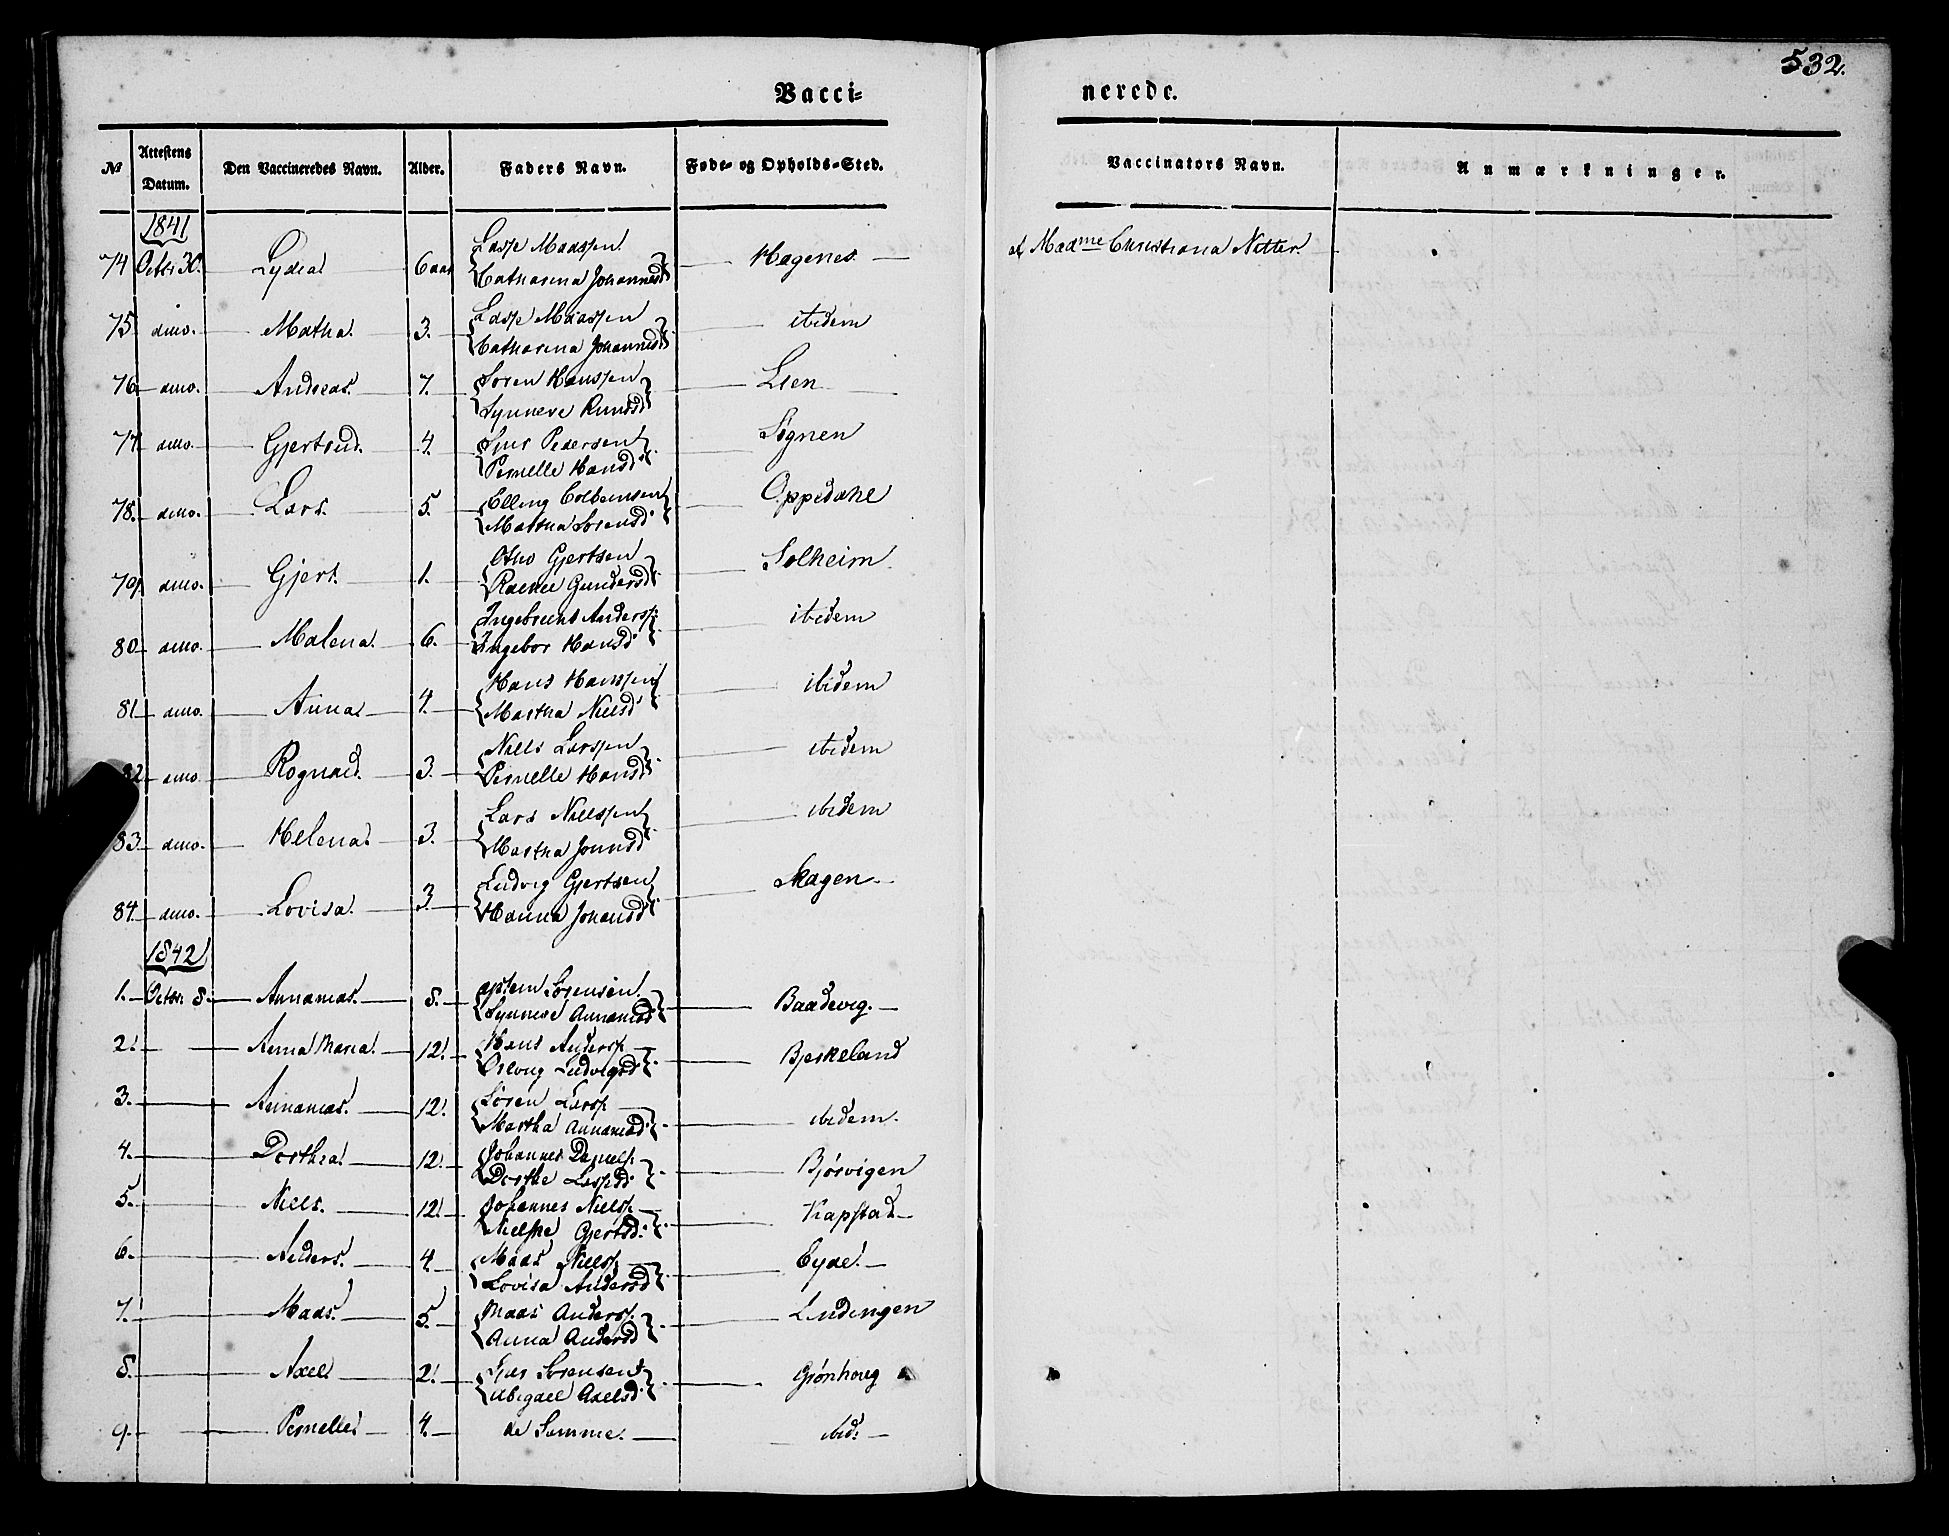 532.
Vacci=
nerede.
№ Attestens Datum. Den Vaccineredes Navn. Alder. Faders Navn. Føde- og Opholds-Sted. Vaccinators Navn. Anmærkninger.
1841
74 Octbr 30. Lydia 6 aar Lasse Maassen Catharina Johannesd Hagenes af Madme Christiana Nitter.
75 dmo. Matha 3. Lasse Maassen Catharina Johannesd ibidem
76 dmo. Andreas. 7. Søren Hanssen Synneve Lien
77 dmo. Gjertrud. 4. Pedersen Pernelle Hansd Sognen
78. dmo. Lars. 5. Elling Colbeinsen Martha Sørensd Oppedahl
79 dmo. Gjert. 1. Otho Gjertsen Gundersd Solheim
80 dmo. Malena. 6. Ingebrict Anderss: Ingebor Hansd ibidem
81 dmo. Anna 4. Hans Hanssen Martha Nielsd ibidem
82 dmo Rognald. 3. Niels Larssen Pernelle Hansd ibidem
83 dmo. Helena. 3. Lars Nielssen Martha Jonnsd ibidem
84. dmo. Lovisa. 3. Ludvig Gjertsen Hanna Johansd Skagen
1842
1. Octbr. 8. Annanias. 8. Sørensen. Synneve Annaniasd Baadevig.
2. Anna Maria. 12. Hans Anderss Ludvigsd Bjerkeland
3. Annanias. 12. Søren Larss Martha Annaniasd ibidem.
4. Dorthea. 12. Johannes Daniels. Dorthe Lassesd Bjørvigen
5. Niels. 12. Johannes Nielss Nielske Gjertsd. Kapstad
6. Anders. 4. Maas Nielss Lovisa Andersd Eyde.
7. Maas. 5. Maas Anderss. Anna Andersd Lindingen
8. Axel 2. Sørensen Abigael Axelsd Grønhoug
9. Pernelle 4. de Samme. ibid: